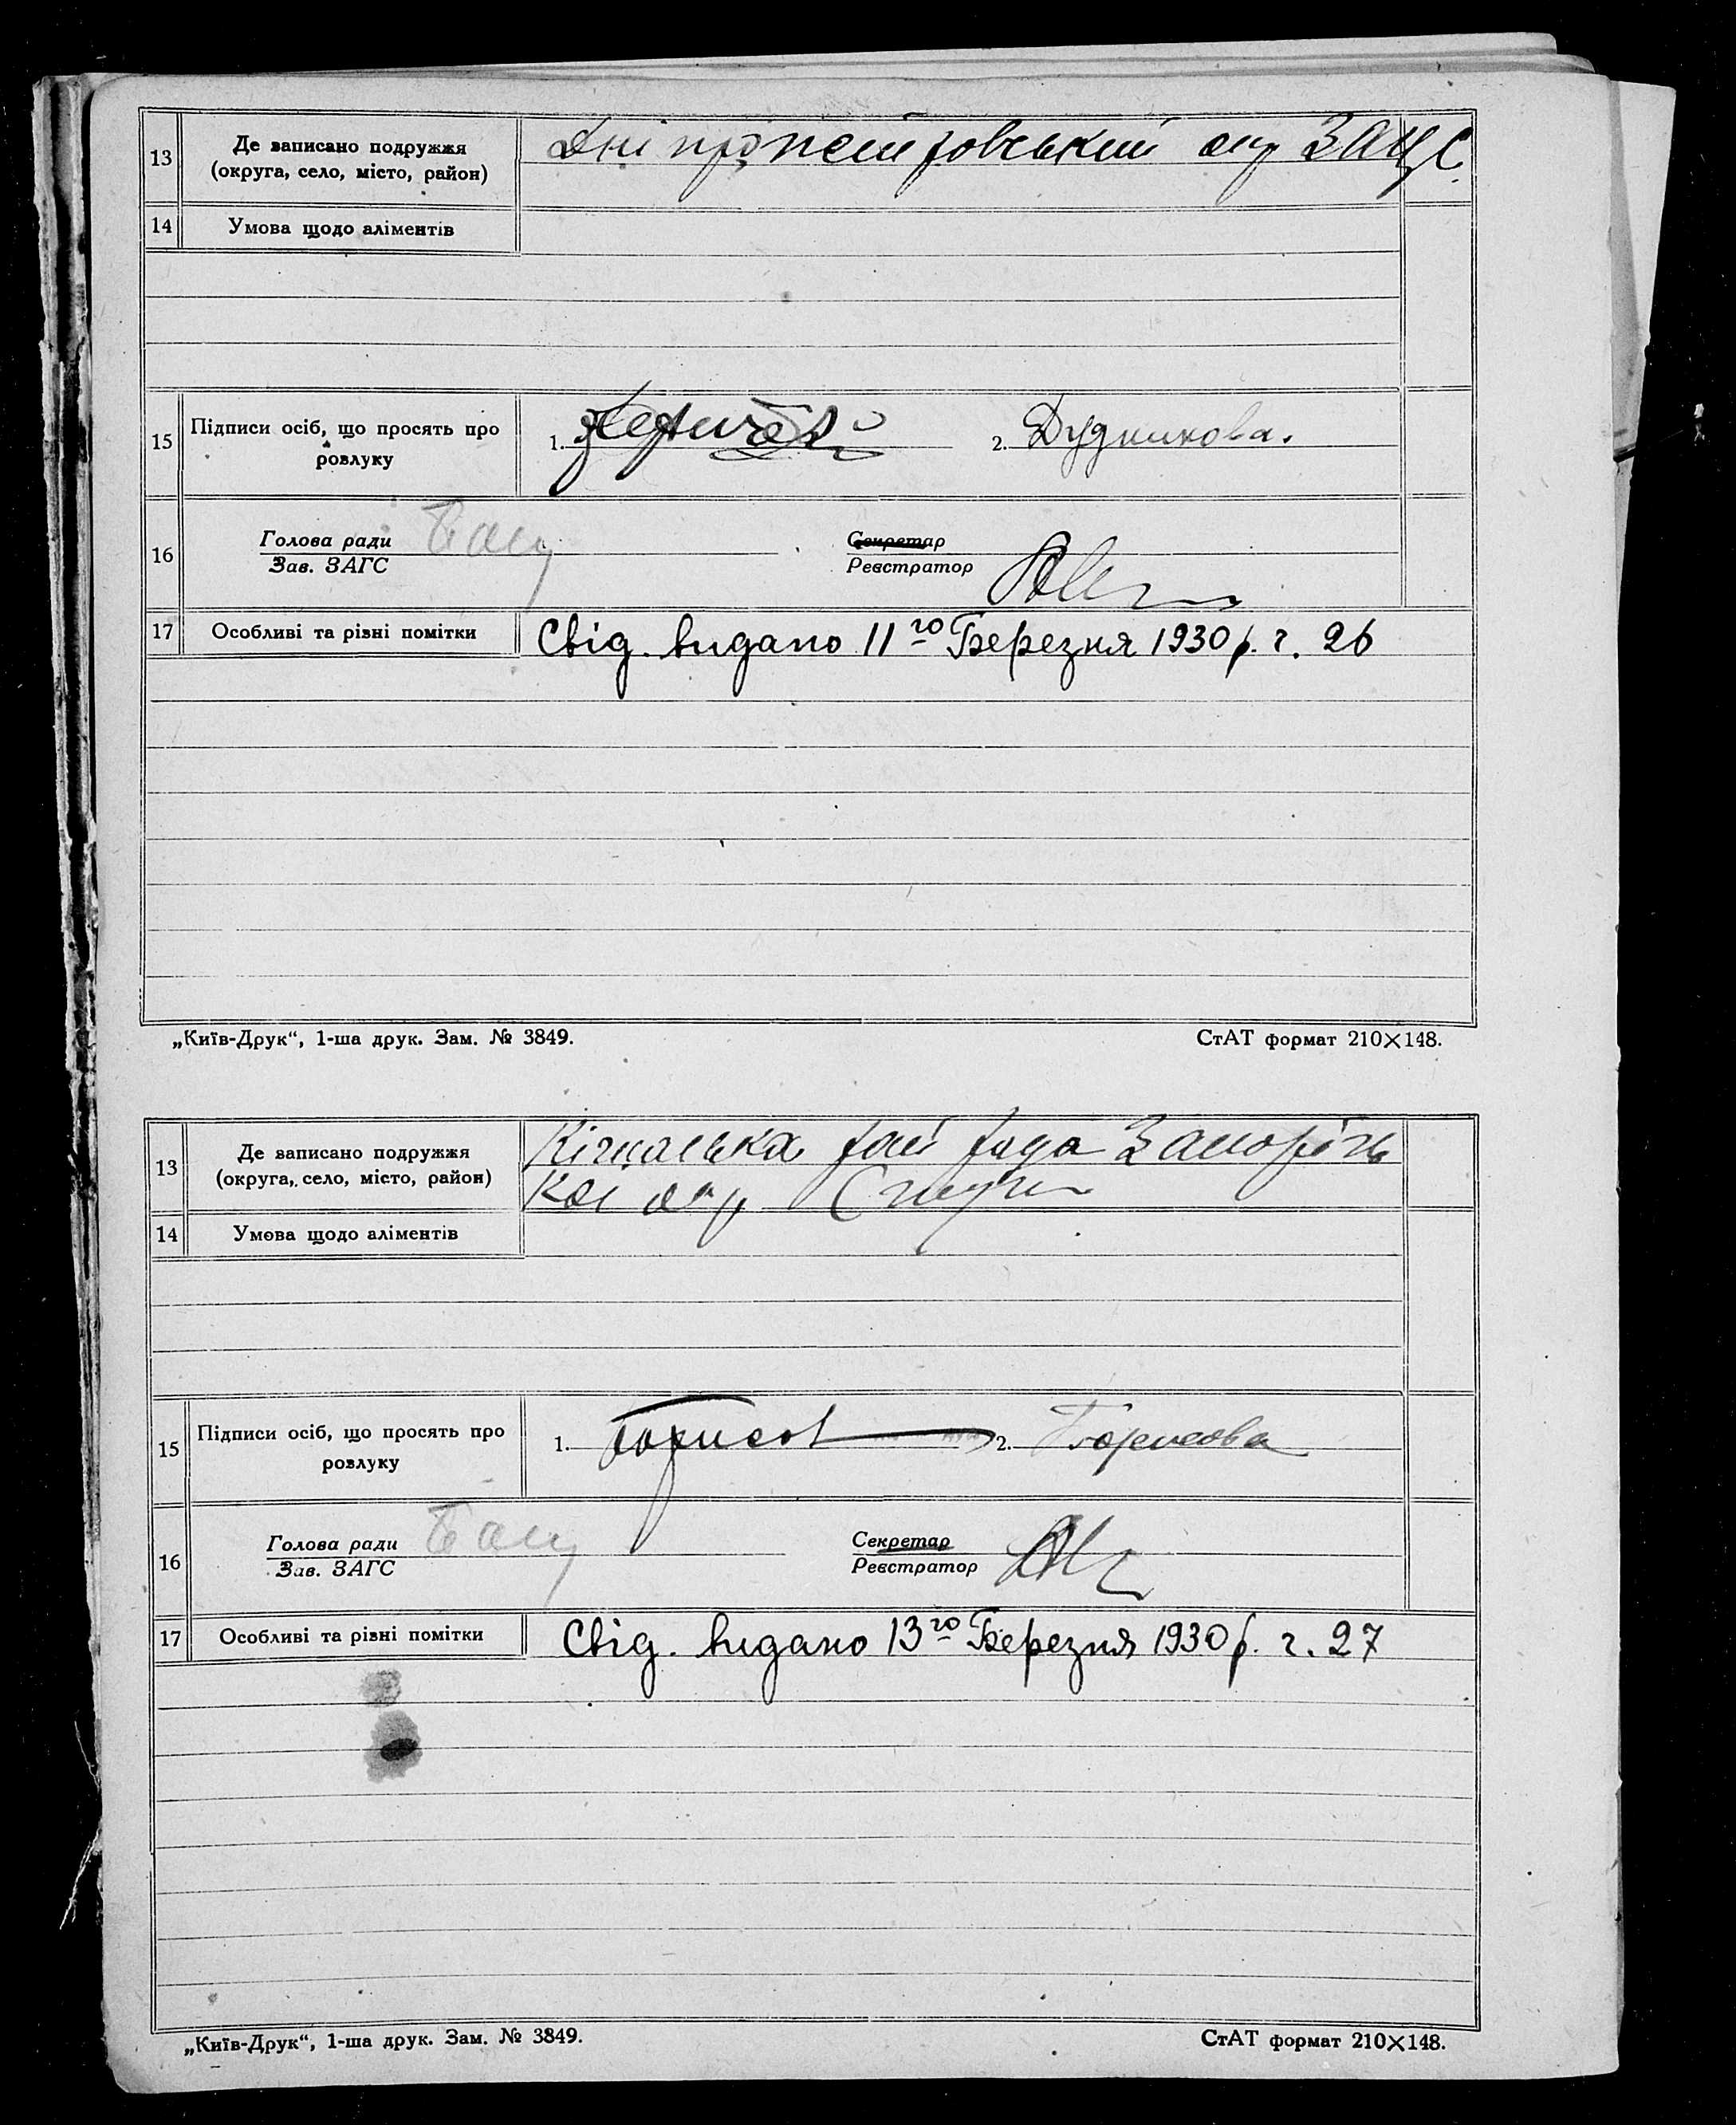 13 Де записано подружжя
(округа, село, місто, район)
Дніпропетровський окр ЗАГС.
14 Умова щодо аліментів
15 Підписи осіб, що просять про
розлуку
1. 2. Дудникова.
16 Голова ради
Зав. ЗАГС
Секретар
Реєстратор
17 Особливі та різні помітки Свід. видано 11го Березня 1930 р. г. 26
„Київ-Друк“, 1-ша друк. Зам. № 3849. СтАТ формат 210×148.
13 Де записано подружжя
(округа, село, місто, район)
Кічкаська рай рада Запоріжь
кої окр
14 Умова щодо аліментів
15 Підписи осіб, що просять про
розлуку
1. Борисов 2. Борисова
16 Голова ради
Зав. ЗАГС
Секретар
Реєстратор
17 Особливі та різні помітки Свід. видано 13го Березня 1930 р. г. 27
„Київ-Друк“, 1-ша друк. Зам. № 3849. СтАТ формат 210×148.